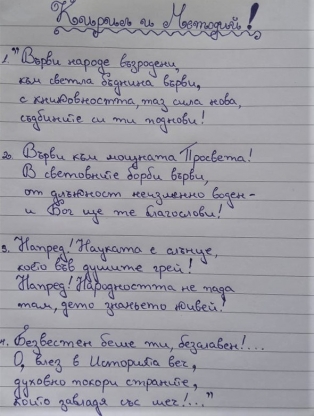 Кирилъ и Методий!
1." Върви народе възродени,
към светла бъднина върви,
с книжовността, таз сила нова,
съдбините си ти поднови!
2. Върви към мощната Просвета!
В световните борби върви,
от длъжност неизменно воден-
и Бог ще те благослови!
3. Напред! Науката е слънце,
което във душите грей!
Напред! Народността не пада
там, дето знаньето живей!
4. Безвестен беше ти, безславен!...
О, влез в Историята веч,
духовно покори страните,
които завладя със меч!..."